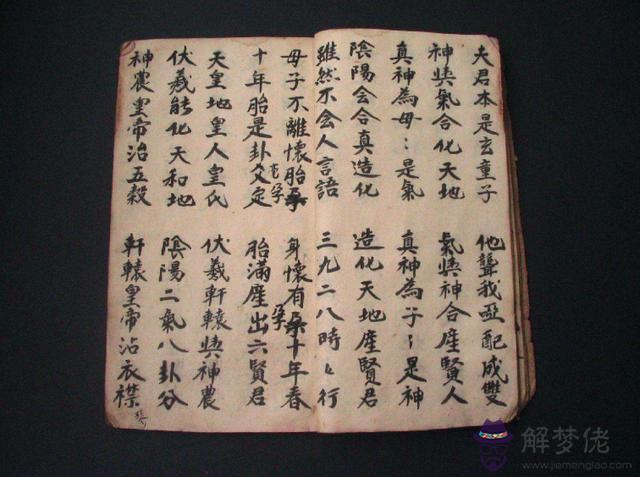 夫君本是玄童子　他聾我啞配成雙
神與氣合化天地　氣與神合產賢人
真神為母：是氣　真神為子：是神
陰陽会合真造化　造化天地產賢君
雖然不会人言語　三九二八時々行
母子不離懷胎孕　身懷有孕十年春
十年胎是卦爻定　胎滿產出六賢君
天皇地皇人皇氏　伏羲軒轅與神農
伏羲能化天和地　陰陽二氣八卦分
神農皇帝治五穀　軒轅皇帝沾衣襟
解梦佬
www.jiemenglao.com